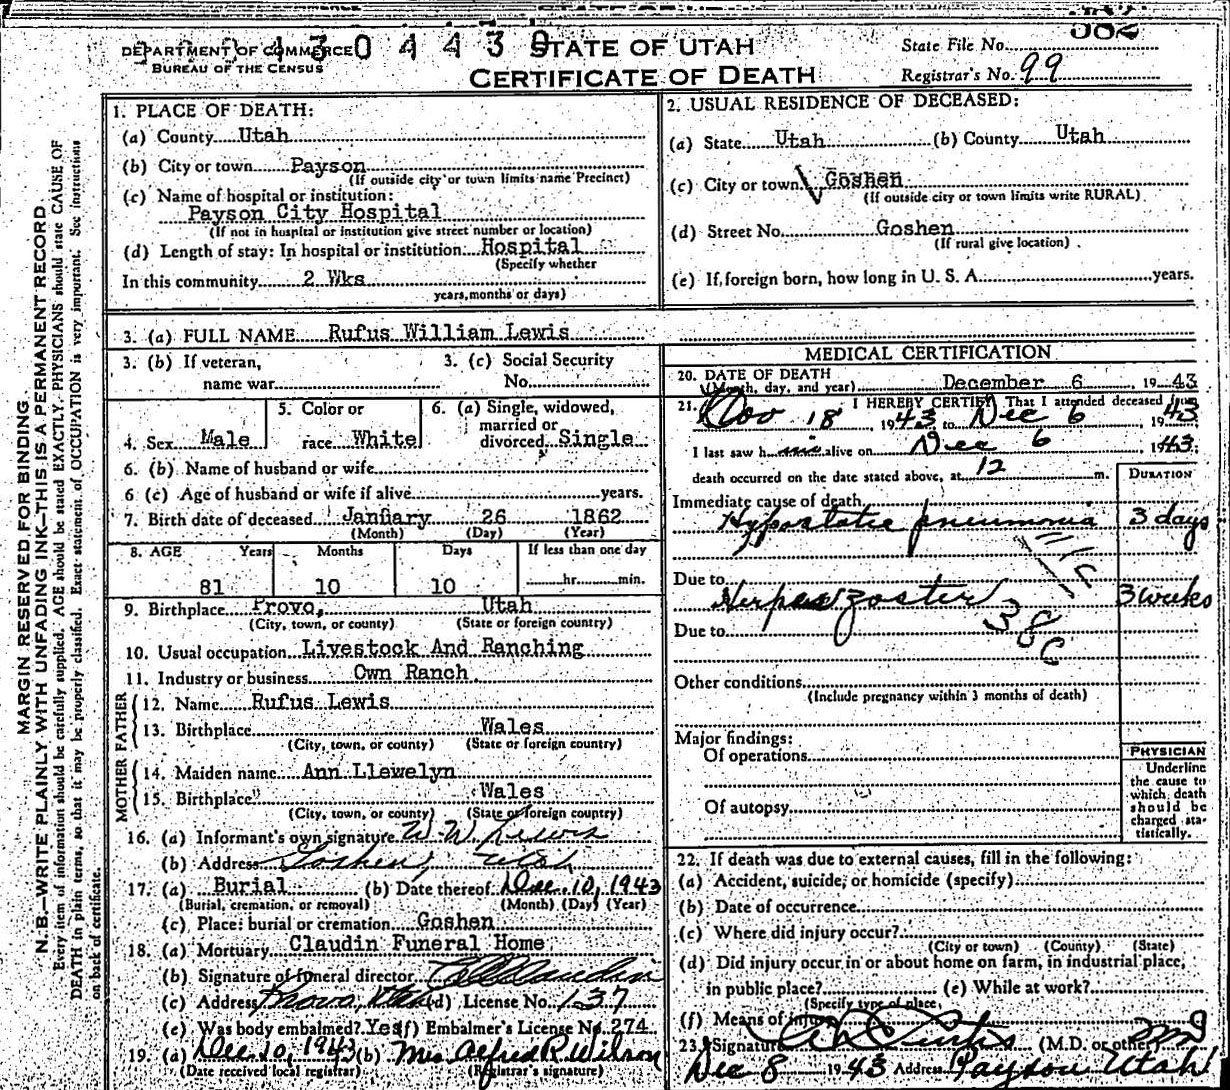 DEPARTMENT OF COMMERCE
BUREAU OF THE CENSUS
STATE OF UTAH
CERTIFICATE OF DEATH
State File No. 382
Registrar's No. 99
MARGIN RESERVED FOR BINDING.
N. B.—WRITE PLAINLY WITH UNFADING INK—THIS IS A PERMANENT RECORD
Every item of information should be carefully supplied. AGE should be stated EXACTLY. PHYSICIANS should state CAUSE OF
DEATH in plain terms, so that it may be properly classified. Exact statement of OCCUPATION is very important. See instructions
on back of certificate.
1. PLACE OF DEATH:
(a) County Utah
(b) City or town Payson
(If outside city or town limits name Precinct)
(c) Name of hospital or institution:
Payson City Hospital
(If not in hospital or institution give street number or location)
(d) Length of stay: In hospital or institution Hospital
(Specify whether
In this community 2 Wks
years, months or days)
2. USUAL RESIDENCE OF DECEASED:
(a) State Utah (b) County Utah
(c) City or town Goshen
(If outside city or town limits write RURAL)
(d) Street No. Goshen
(If rural give location)
(e) If foreign born, how long in U. S. A. years.
3. (a) FULL NAME Rufus William Lewis
3. (b) If veteran, 3. (c) Social Security
name war No.
4. Sex Male 5. Color or race White 6. (a) Single, widowed, married or divorced Single
6. (b) Name of husband or wife
6 (c) Age of husband or wife if alive years.
7. Birth date of deceased January 26 1862
(Month) (Day) (Year)
8. AGE Years Months Days If less than one day
81 10 10 hr. min.
9. Birthplace Provo, Utah
(City, town, or county) (State or foreign country)
10. Usual occupation Livestock And Ranching
11. Industry or business Own Ranch
FATHER
12. Name Rufus Lewis
13. Birthplace Wales
(City, town, or county) (State or foreign country)
MOTHER
14. Maiden name Ann Llewelyn
15. Birthplace Wales
(City, town, or county) (State or foreign country)
16. (a) Informant's own signature W. W. Lewis
(b) Address Goshen, Utah
17. (a) Burial (b) Date thereof Dec. 10, 1943
(Burial, cremation, or removal) (Month) (Day) (Year)
(c) Place: burial or cremation Goshen
18. (a) Mortuary Claudin Funeral Home
(b) Signature of funeral director
(c) Address Provo, Utah (d) License No. 137
(e) Was body embalmed? Yes (f) Embalmer's License No. 274
19. (a) Dec 10, 1943 (b) Mrs Alfred R Wilson
(Date received local registrar) (Registrar's signature)
MEDICAL CERTIFICATION
20. DATE OF DEATH
(Month, day, and year) December 6, 1943
21. I HEREBY CERTIFY, That I attended deceased from
Nov 18 1943 to Dec 6, 1943
I last saw him alive on Dec 6, 1943;
death occurred on the date stated above, at 12 m.
DURATION
Immediate cause of death
Hypostatic pneumonia 3 days
Due to
Herpes zoster 3 weeks
38C
Due to
Other conditions
(Include pregnancy within 3 months of death)
Major findings:
Of operations
Of autopsy
PHYSICIAN
Underline
the cause to
which death
should be
charged sta-
tistically.
22. If death was due to external causes, fill in the following:
(a) Accident, suicide, or homicide (specify)
(b) Date of occurrence
(c) Where did injury occur?
(City or town) (County) (State)
(d) Did injury occur in or about home on farm, in industrial place,
in public place? (e) While at work?
(Specify type of place,
(f) Means of injury
23. Signature (M.D. or other) MD
Dec 8 1943 Address Payson Utah